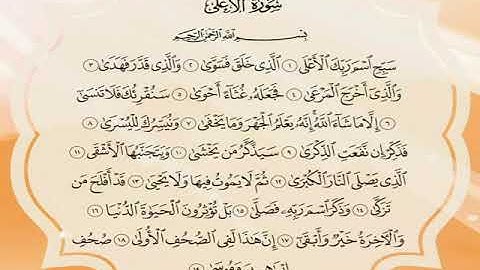 سورة الأعلى
بِسْمِ اللَّهِ الرَّحْمَٰنِ الرَّحِيمِ
سَبِّحِ اسْمَ رَبِّكَ الْأَعْلَى ١ الَّذِي خَلَقَ فَسَوَّىٰ ٢ وَالَّذِي قَدَّرَ فَهَدَىٰ ٣
وَالَّذِي أَخْرَجَ الْمَرْعَىٰ ٤ فَجَعَلَهُ غُثَاءً أَحْوَىٰ ٥ سَنُقْرِئُكَ فَلَا تَنسَىٰ
٦ إِلَّا مَا شَاءَ اللَّهُ إِنَّهُ يَعْلَمُ الْجَهْرَ وَمَا يَخْفَىٰ ٧ وَنُيَسِّرُكَ لِلْيُسْرَىٰ ٨
فَذَكِّرْ إِن نَّفَعَتِ الذِّكْرَىٰ ٩ سَيَذَّكَّرُ مَن يَخْشَىٰ ١٠ وَيَتَجَنَّبُهَا الْأَشْقَى ١١
الَّذِي يَصْلَى النَّارَ الْكُبْرَىٰ ١٢ ثُمَّ لَا يَمُوتُ فِيهَا وَلَا يَحْيَىٰ ١٣ قَدْ أَفْلَحَ مَن
تَزَكَّىٰ ١٤ وَذَكَرَ اسْمَ رَبِّهِ فَصَلَّىٰ ١٥ بَلْ تُؤْثِرُونَ الْحَيَاةَ الدُّنْيَا ١٦
وَالْآخِرَةُ خَيْرٌ وَأَبْقَىٰ ١٧ إِنَّ هَٰذَا لَفِي الصُّحُفِ الْأُولَىٰ ١٨ صُحُفِ
إِبْرَاهِيمَ وَمُوسَىٰ ١٩